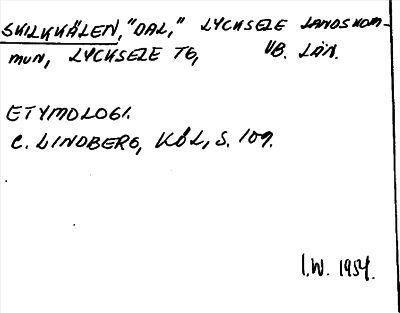 SKILKKÄLEN, "DAL," LYCKSELE LANDSKOM-
MUN, LYCKSELE TG, VB. LÄN.
ETYMOLOGI.
C. LINDBERG, KÖL, S. 109.
I.W. 1954.